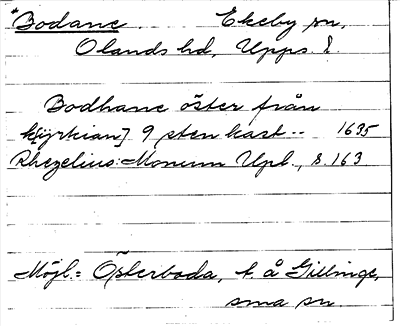 *Bodane. Ekeby sn,
Olands hd, Upps. l.
Bodhane öster från
k[yrkian] 9 sten kast -- 1635
Rhezelius: Monum Upl., s. 163
Möjl. = Österboda, t. å Gillinge,
sma sn